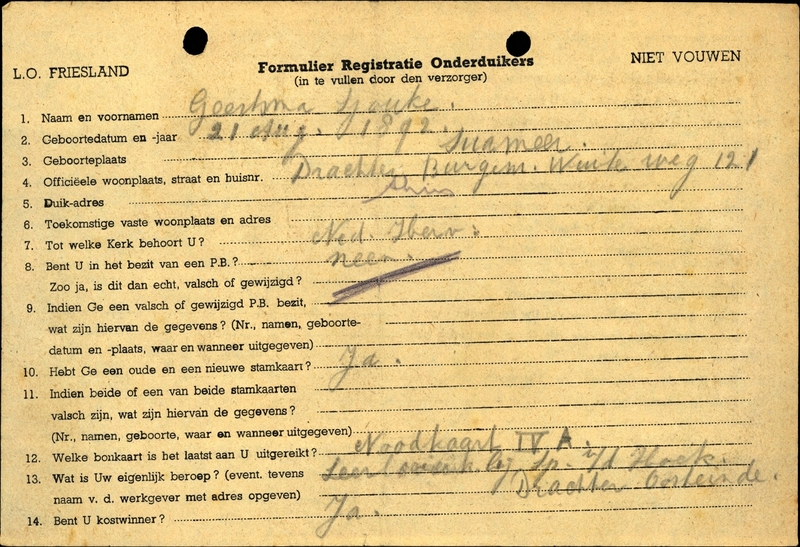 L.O. FRIESLAND
Formulier Registratie Onderduikers
NIET VOUWEN
(in te vullen door den verzorger)
1. Naam en voornamen Geertsma Sjouke.
2. Geboortedatum en -jaar 21 Aug. 1892.
3. Geboorteplaats Suameer.
4. Officiëele woonplaats, straat en huisnr. Drachten Burgem. Wuite weg 121
5. Duik-adres
6. Toekomstige vaste woonplaats en adres
7. Tot welke Kerk behoort U? Ned. Herv.
8. Bent U in het bezit van een P.B.? neen.
Zoo ja, is dit dan echt, valsch of gewijzigd?
9. Indien Ge een valsch of gewijzigd P.B. bezit,
wat zijn hiervan de gegevens? (Nr., namen, geboorte-
datum en -plaats, waar en wanneer uitgegeven)
10. Hebt Ge een oude en een nieuwe stamkaart? Ja.
11. Indien beide of een van beide stamkaarten
valsch zijn, wat zijn hiervan de gegevens?
(Nr., namen, geboorte, waar en wanneer uitgegeven)
12. Welke bonkaart is het laatst aan U uitgereikt? Noodkaart IV A.
13. Wat is Uw eigenlijk beroep? (event. tevens Sp. v/d Hoek.
naam v. d. werkgever met adres opgeven) Drachten Oosteinde.
14. Bent U kostwinner? Ja.